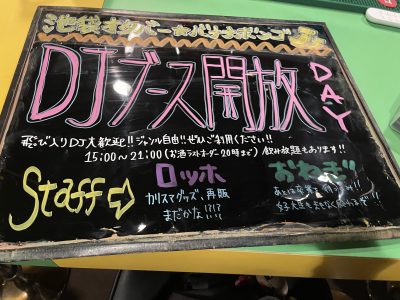 池袋オタバー☆バナナボンゴ
DJブース開放
DAY
飛び入りDJ大歓迎!! ジャンル自由!! ぜひご利用ください!!
15:00〜21:00(お酒ラストオーダー20時まで) 飲み放題もあります!!
Staff⇨
ロッホ
カリスマグッズ、再販
まだかな!?!?
おねぎ